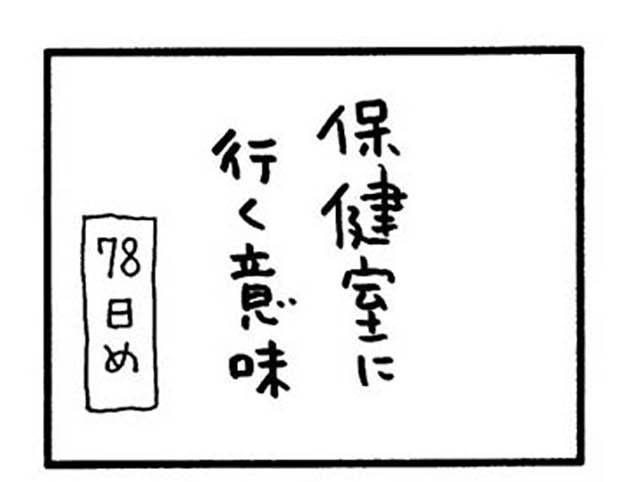 保健室に
行く意味
78日め